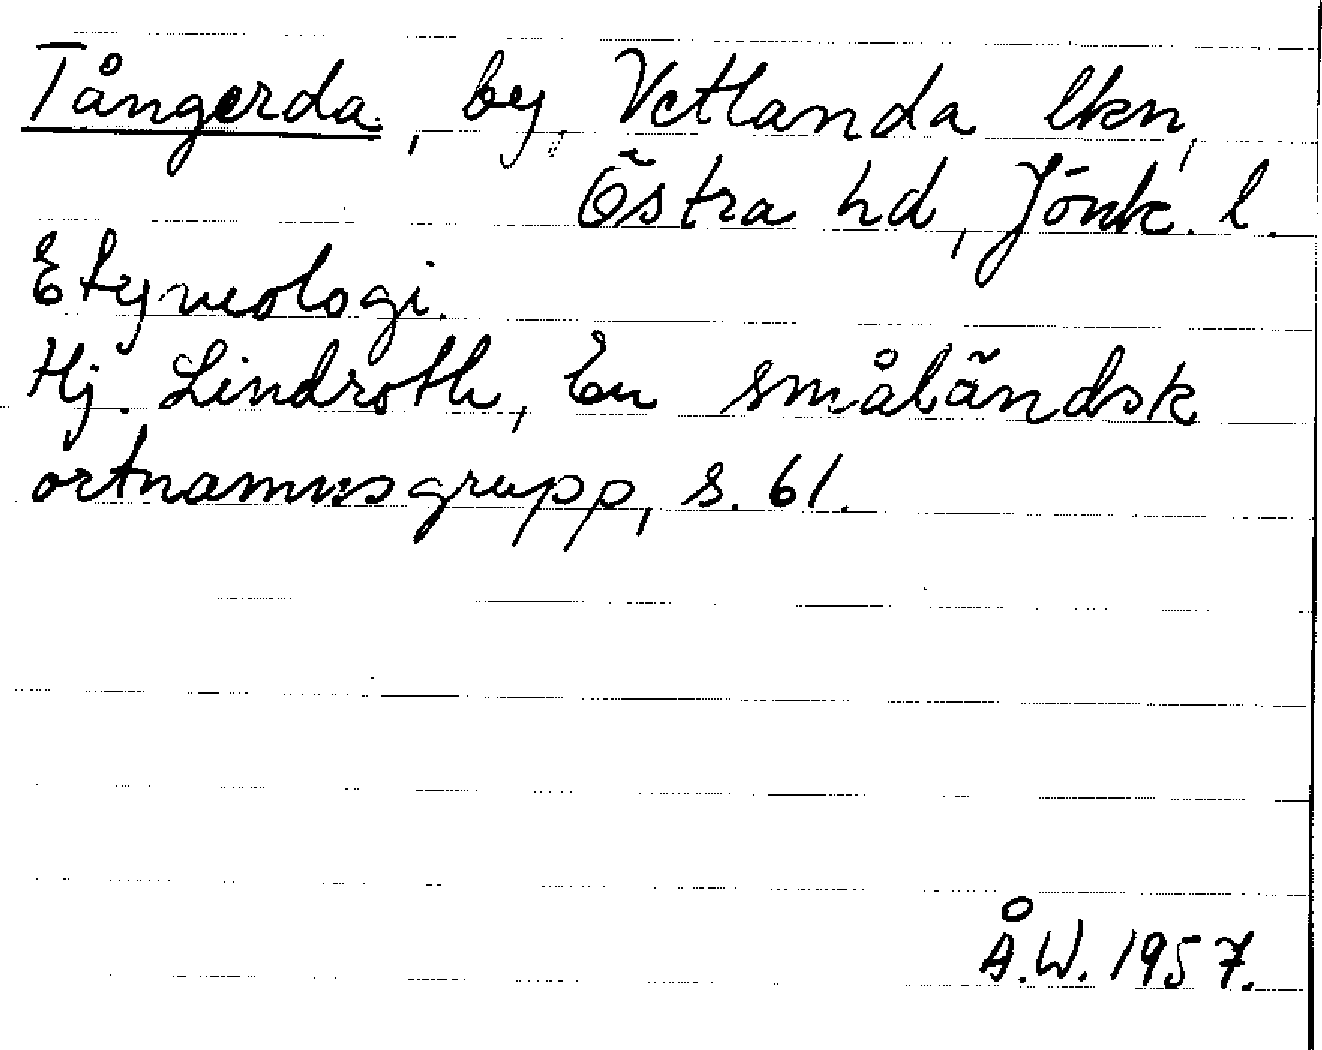 Tångerda, by, Vetlanda lkn,
Östra hd, Jönk. l.
Etymologi.
Hj. Lindroth, En småländsk
ortnamnsgrupp, s. 61.
Å.W. 1957.